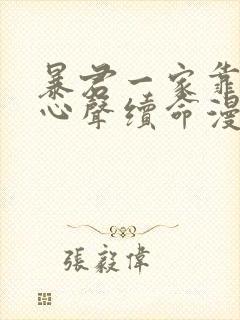 暴君一家靠
心聲續命漫
張毅偉